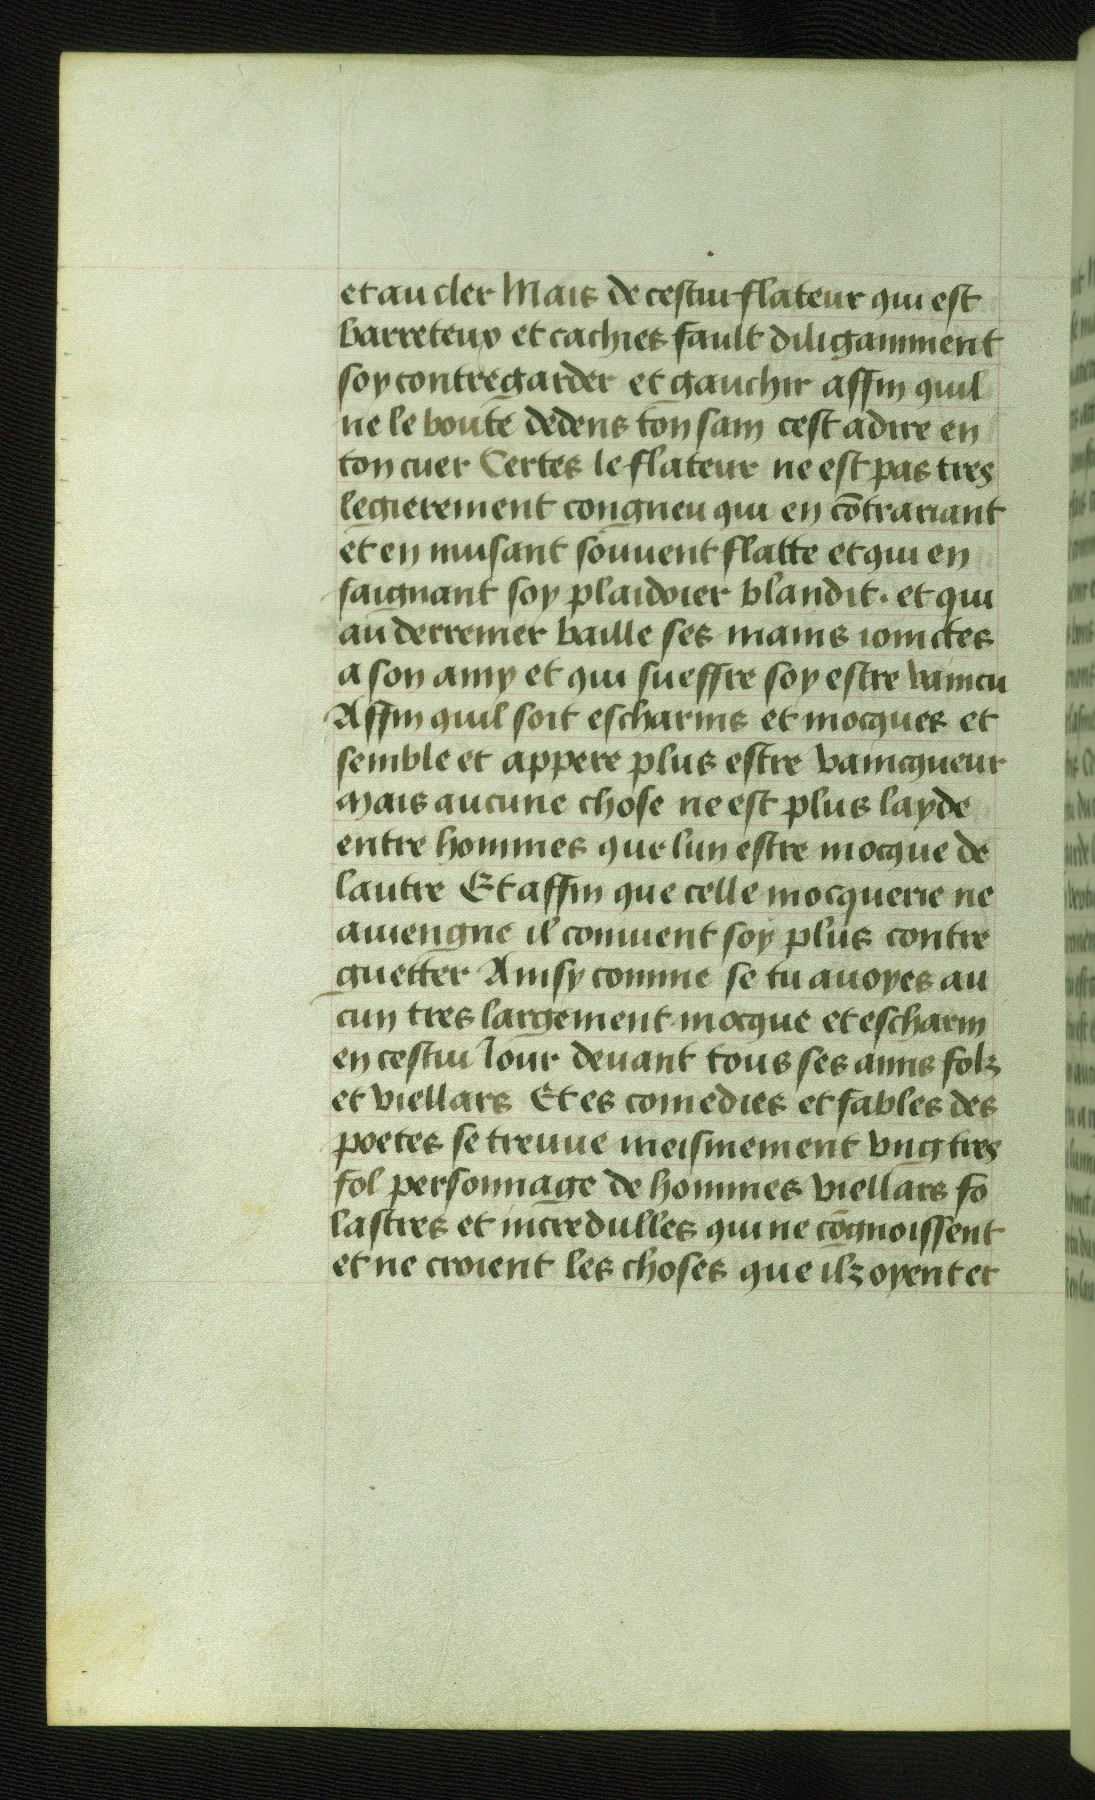 et au cler Mais de cestui flateur qui est
barreteux et cachies fault diligamment
soy contregarder et gauchir affin quil
ne le boute dedens ton sain cest adire en
ton cuer Certes le flateur ne est pas tres
legierement congneu qui en cōtrariant
et en nuisant souuent flatte et qui en
faignant soy plaidoier blandit. et qui
au derrenier baille ses mains ioinctes
a son amy et qui sueffre soy estre vaincu
Affin quil soit escharnis et mocques et
semble et appere plus estre vaincqueur
Mais aucune chose ne est plus layde
entre hommes que lun estre mocque de
lautre Et affin que celle mocquerie ne
auiengne il conuient soy plus contre
guetter Ainsy comme se tu auoyes au
cun tres largement mocque et escharni
en cestui iour deuant tous ses amis folz
et viellars Et es comedies et fables des
poetes se treuue meismement vng tres
fol personnage de hommes viellars fo
lastres et incredulles qui ne cōgnoissent
et ne croient les choses que ilz oyent et